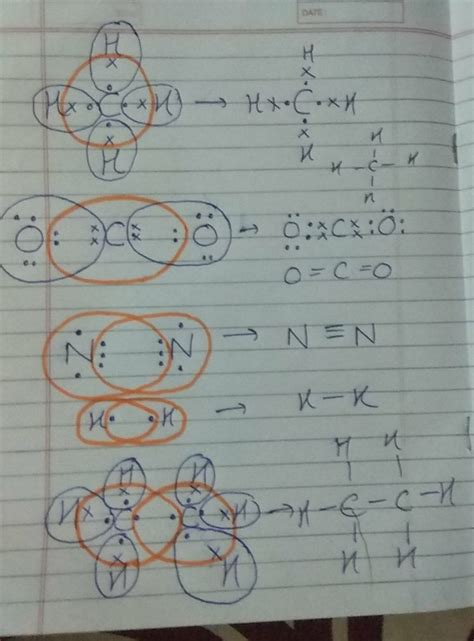 DATE:
H
H x C x H → H x C x H
H
H
H
H
H-C-H
H
O C O → O x x C x x O
O=C=O
N N → N≡N
H H → H-H
H H H H
H C C H → H-C-C-H
H H H H